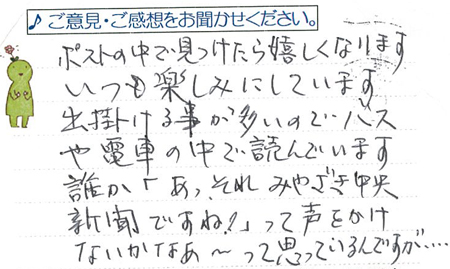 ♪ご意見・ご感想をお聞かせください。
ポストの中で見つけたら嬉しくなります
いつも楽しみにしています
出掛ける事が多いのでバス
や電車の中で読んでいます
誰か「あっ、それ みやざき中央
新聞ですね!」って声をかけ
ないかなあ～って思っているんですが……